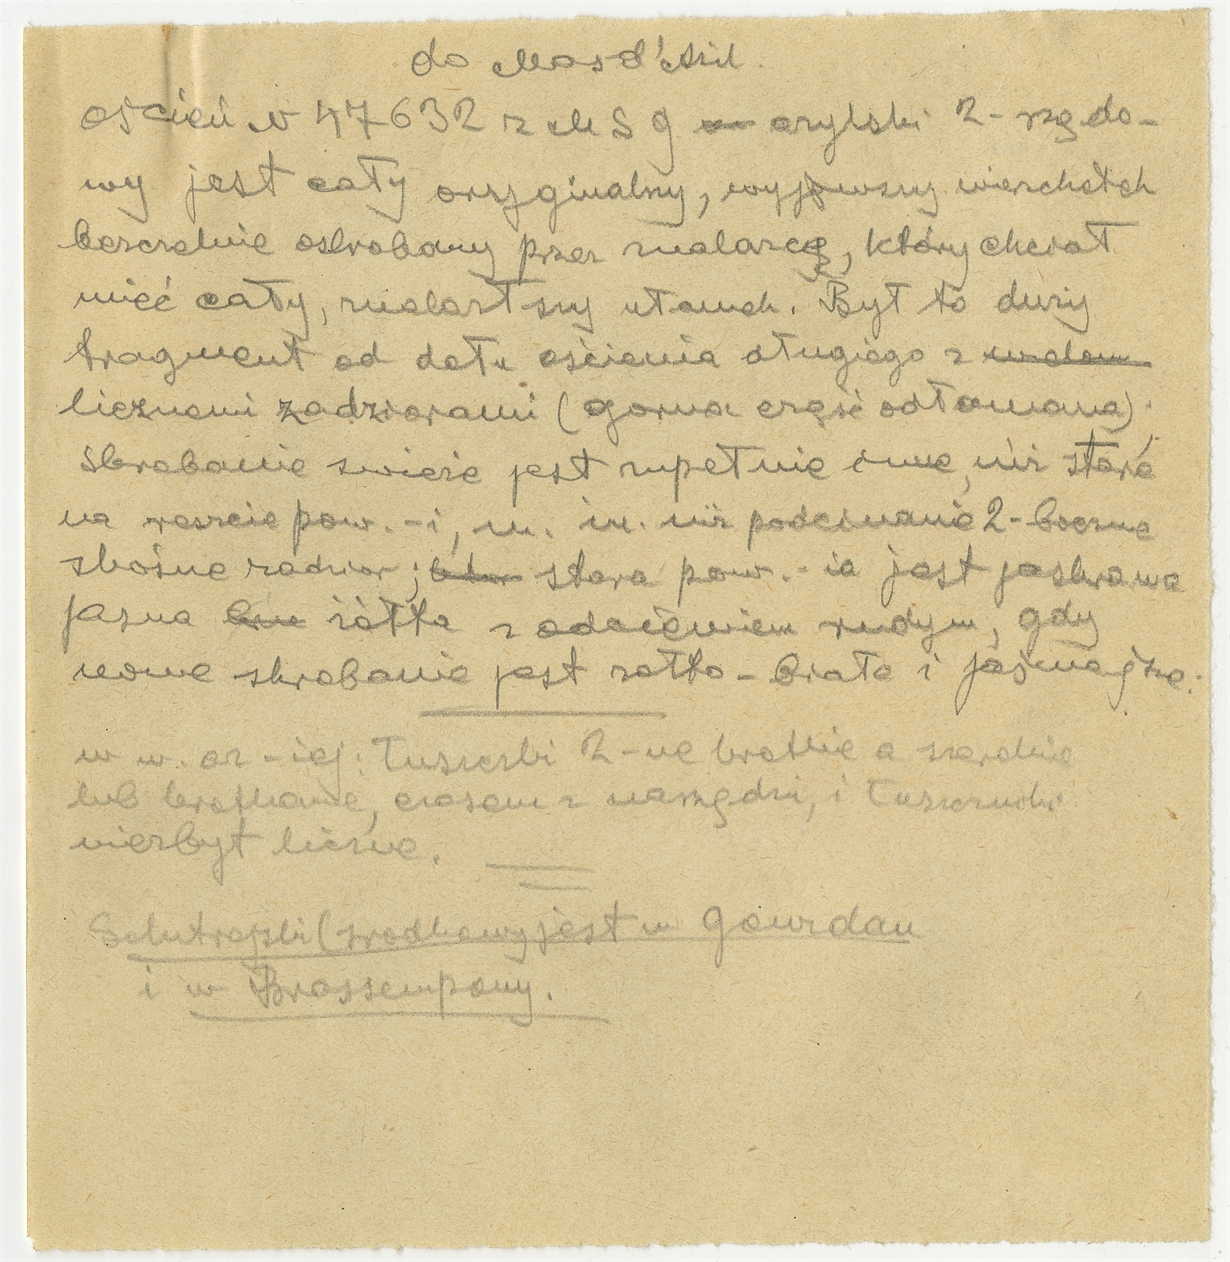 do Mas d'Azil.
oścień N 47632 z M S G azylski 2-rzędo-
wy jest cały oryginalny, wyjąwszy wierzchołek
bezczelnie oskrobany przez znalazcę, który chciał
mieć cały, znalazłszy ułamek. Był to duży
fragment od dołu ościenia długiego z
licznemi zadziorami (gorna część odłamana).
Skrobanie świeże jest zupełnie inne, niż stare
na reszcie pow.-i, m. in. niż podcinanie 2-boczne
skośne zadzior; stara pow.-ia jest jaskrawa
jasna żółta z odcieniem rudym, gdy
nowe skrobanie jest żółto-białe i jaśniejsze.
w w. oz-iej: Łuszczki 2-ne krótkie a szerokie
lub kratkowane, czasem z narzędzi, i Łuszczuki
niezbyt liczne.
Solutrejski (środkowy jest w Gourdan
i w Brassempouy.